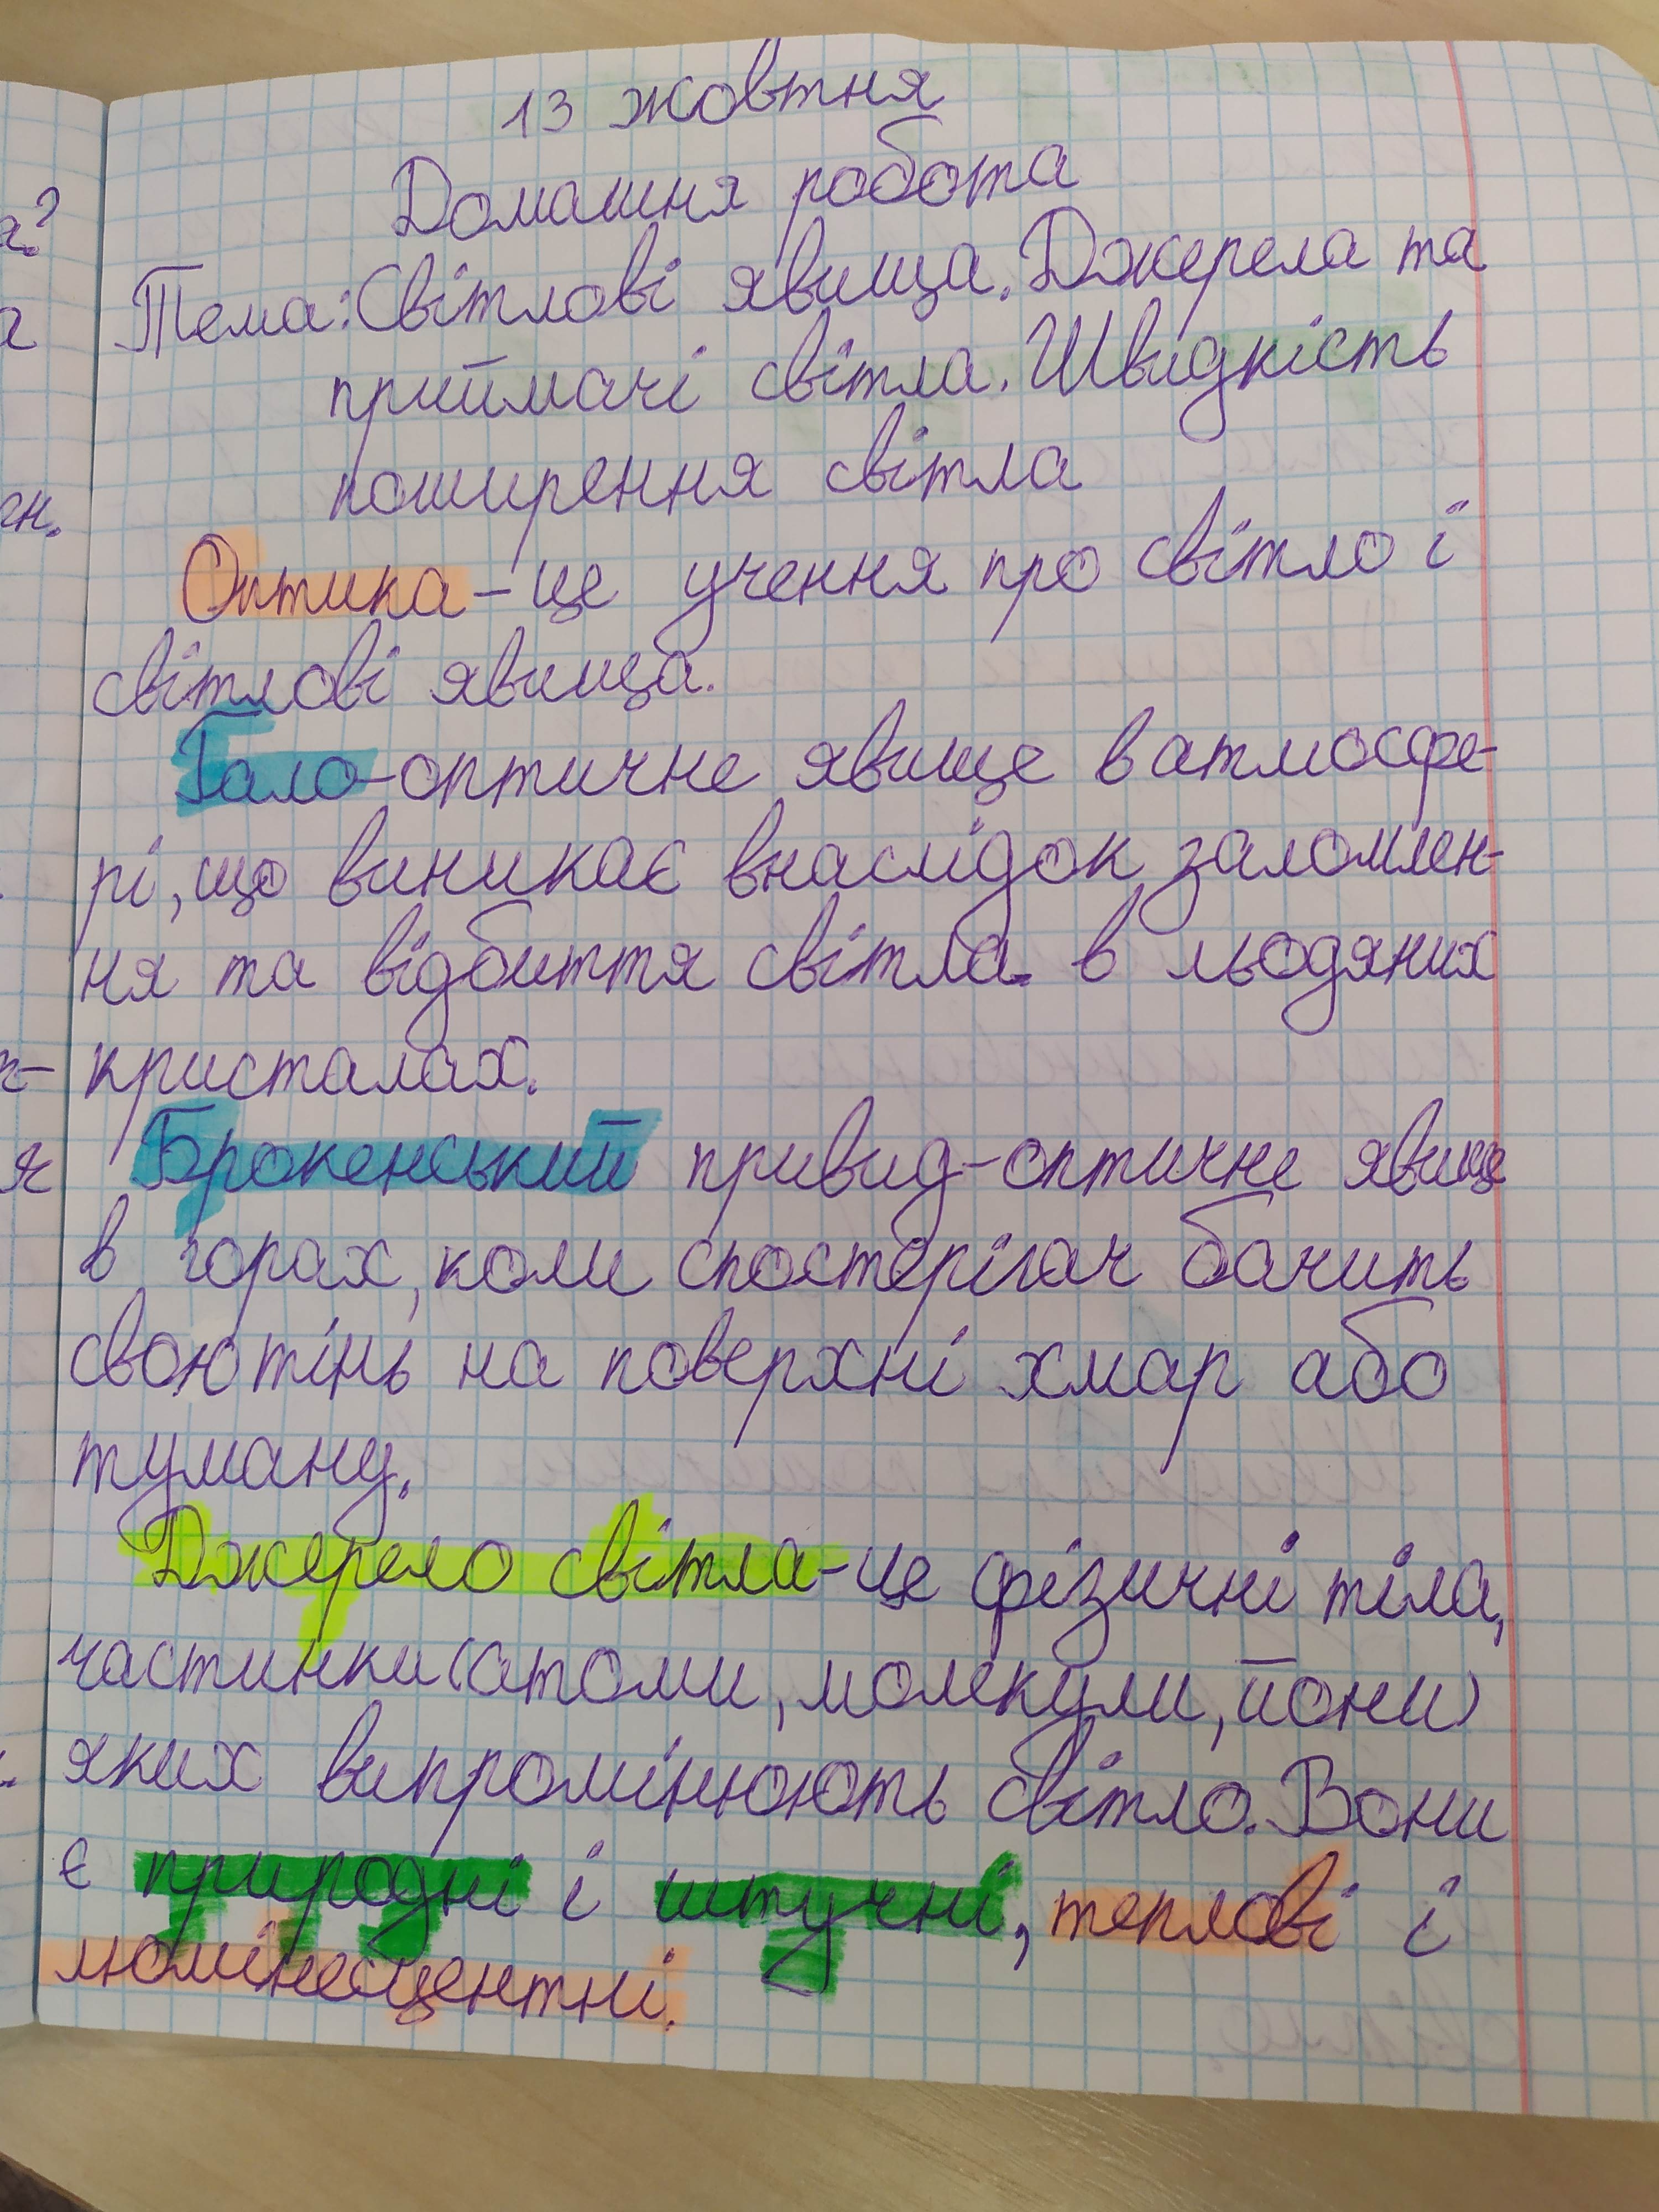 13 жовтня
Домашня робота
Тема: Світлові явища. Джерела та
приймачі світла. Швидкість
поширення світла
Оптика – це учення про світло і
світлові явища.
Гало – оптичне явище в атмосфе-
рі, що виникає внаслідок заломлен-
ня та відбиття світла в льодяних
кристалах.
Брокенський привид – оптичне явище
в горах, коли спостерігач бачить
свою тінь на поверхні хмар або
туману.
Джерело світла – це фізичні тіла,
частинки (атоми, молекули, йони)
яких випромінюють світло. Вони
є природні і штучні, теплові і
люмінесцентні.